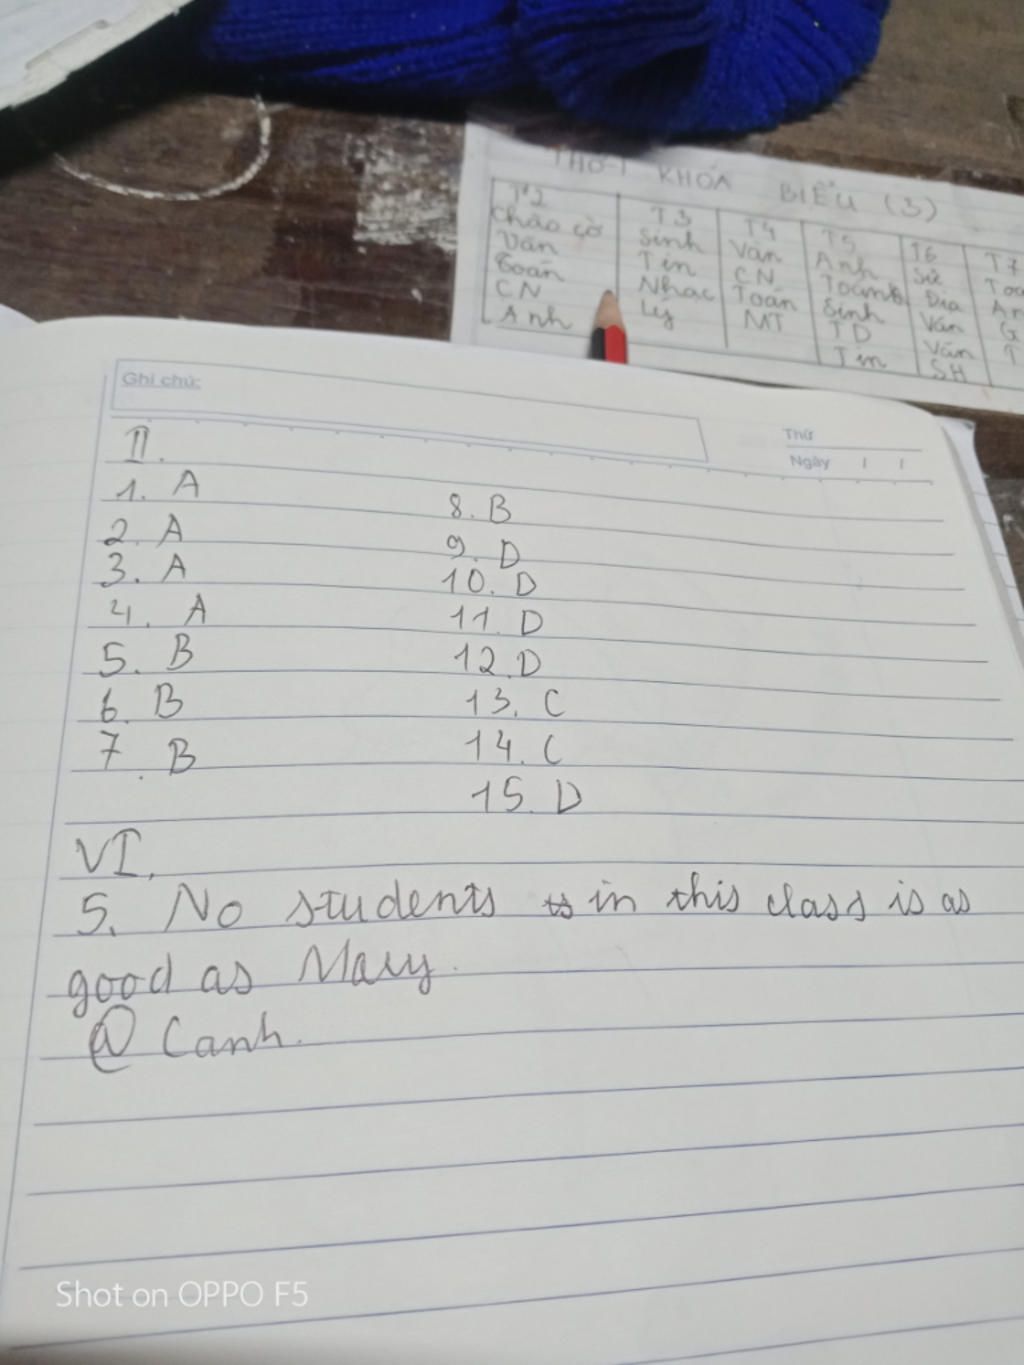 THỜI KHÓA BIỂU (3)
T2 T3 T4 T5 T6 T7
Chào cờ Sinh Văn Anh Sử
Văn Tin CN Toán Địa
Toán Nhạc Toán Sinh Văn
CN Lý MT TD Văn
Anh Tin SH
Ghi chú:
Thứ
Ngày / /
II.
1. A
2. A
3. A
4. A
5. B
6. B
7. B
8. B
9. D
10. D
11. D
12. D
13. C
14. C
15. D
VI.
5. No students in this class is as
good as Mary.
@ Canh.
Shot on OPPO F5